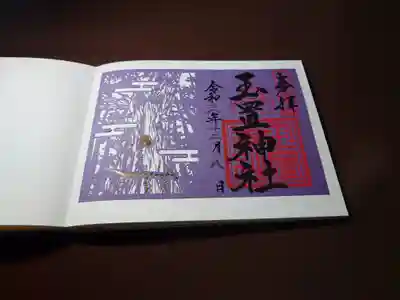 参拝
玉置神社
令和二年十二月八日